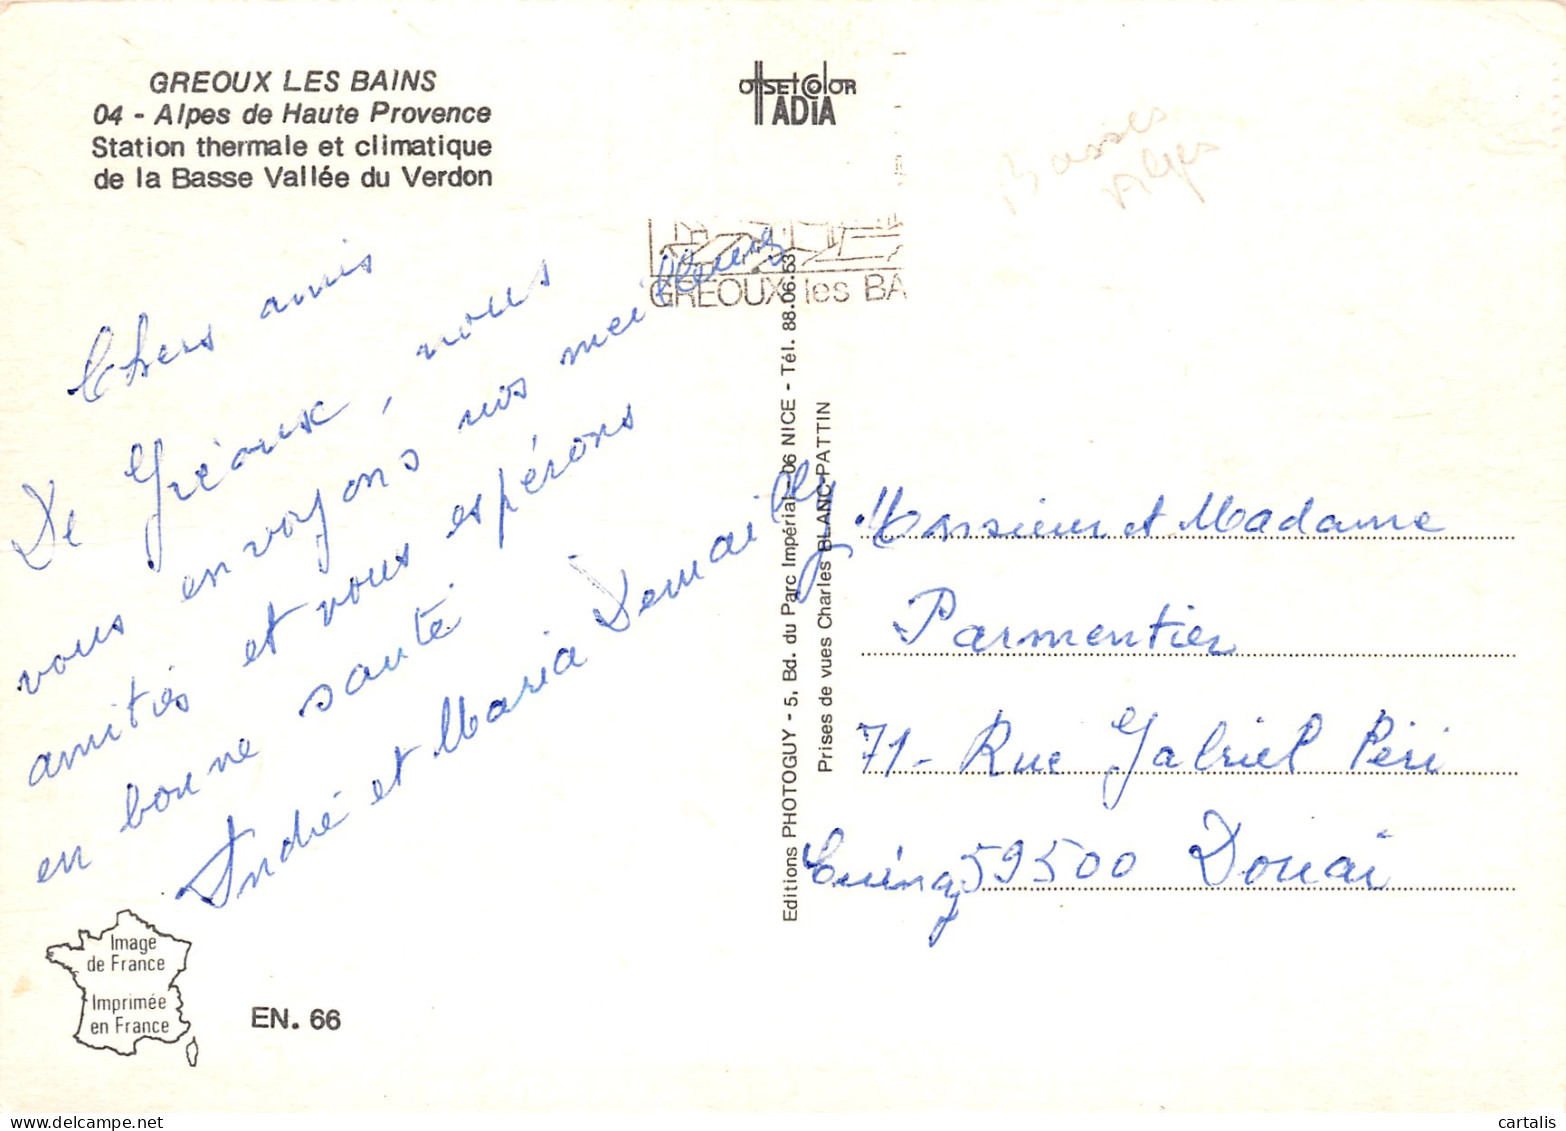 GREOUX LES BAINS
04 - Alpes de Haute Provence
Station thermale et climatique
de la Basse Vallée du Verdon
OffsetColor
ADIA
Basses
Alpes
GREOUX les BA
Chers amis
De Gréoux, nous
vous envoyons nos meilleures
amitiés et vous espérons
en bonne santé
André et Maria Demailly
Editions PHOTOGUY - 5, Bd. du Parc Impérial - 06 NICE - Tél. 88.06.53
Prises de vues Charles BLANC-PATTIN
Monsieur et Madame
Parmentier
71 - Rue Gabriel Péri
Cuincy 59500 Douai
Image
de France
Imprimée
en France
EN. 66
cartalis
www.delcampe.net